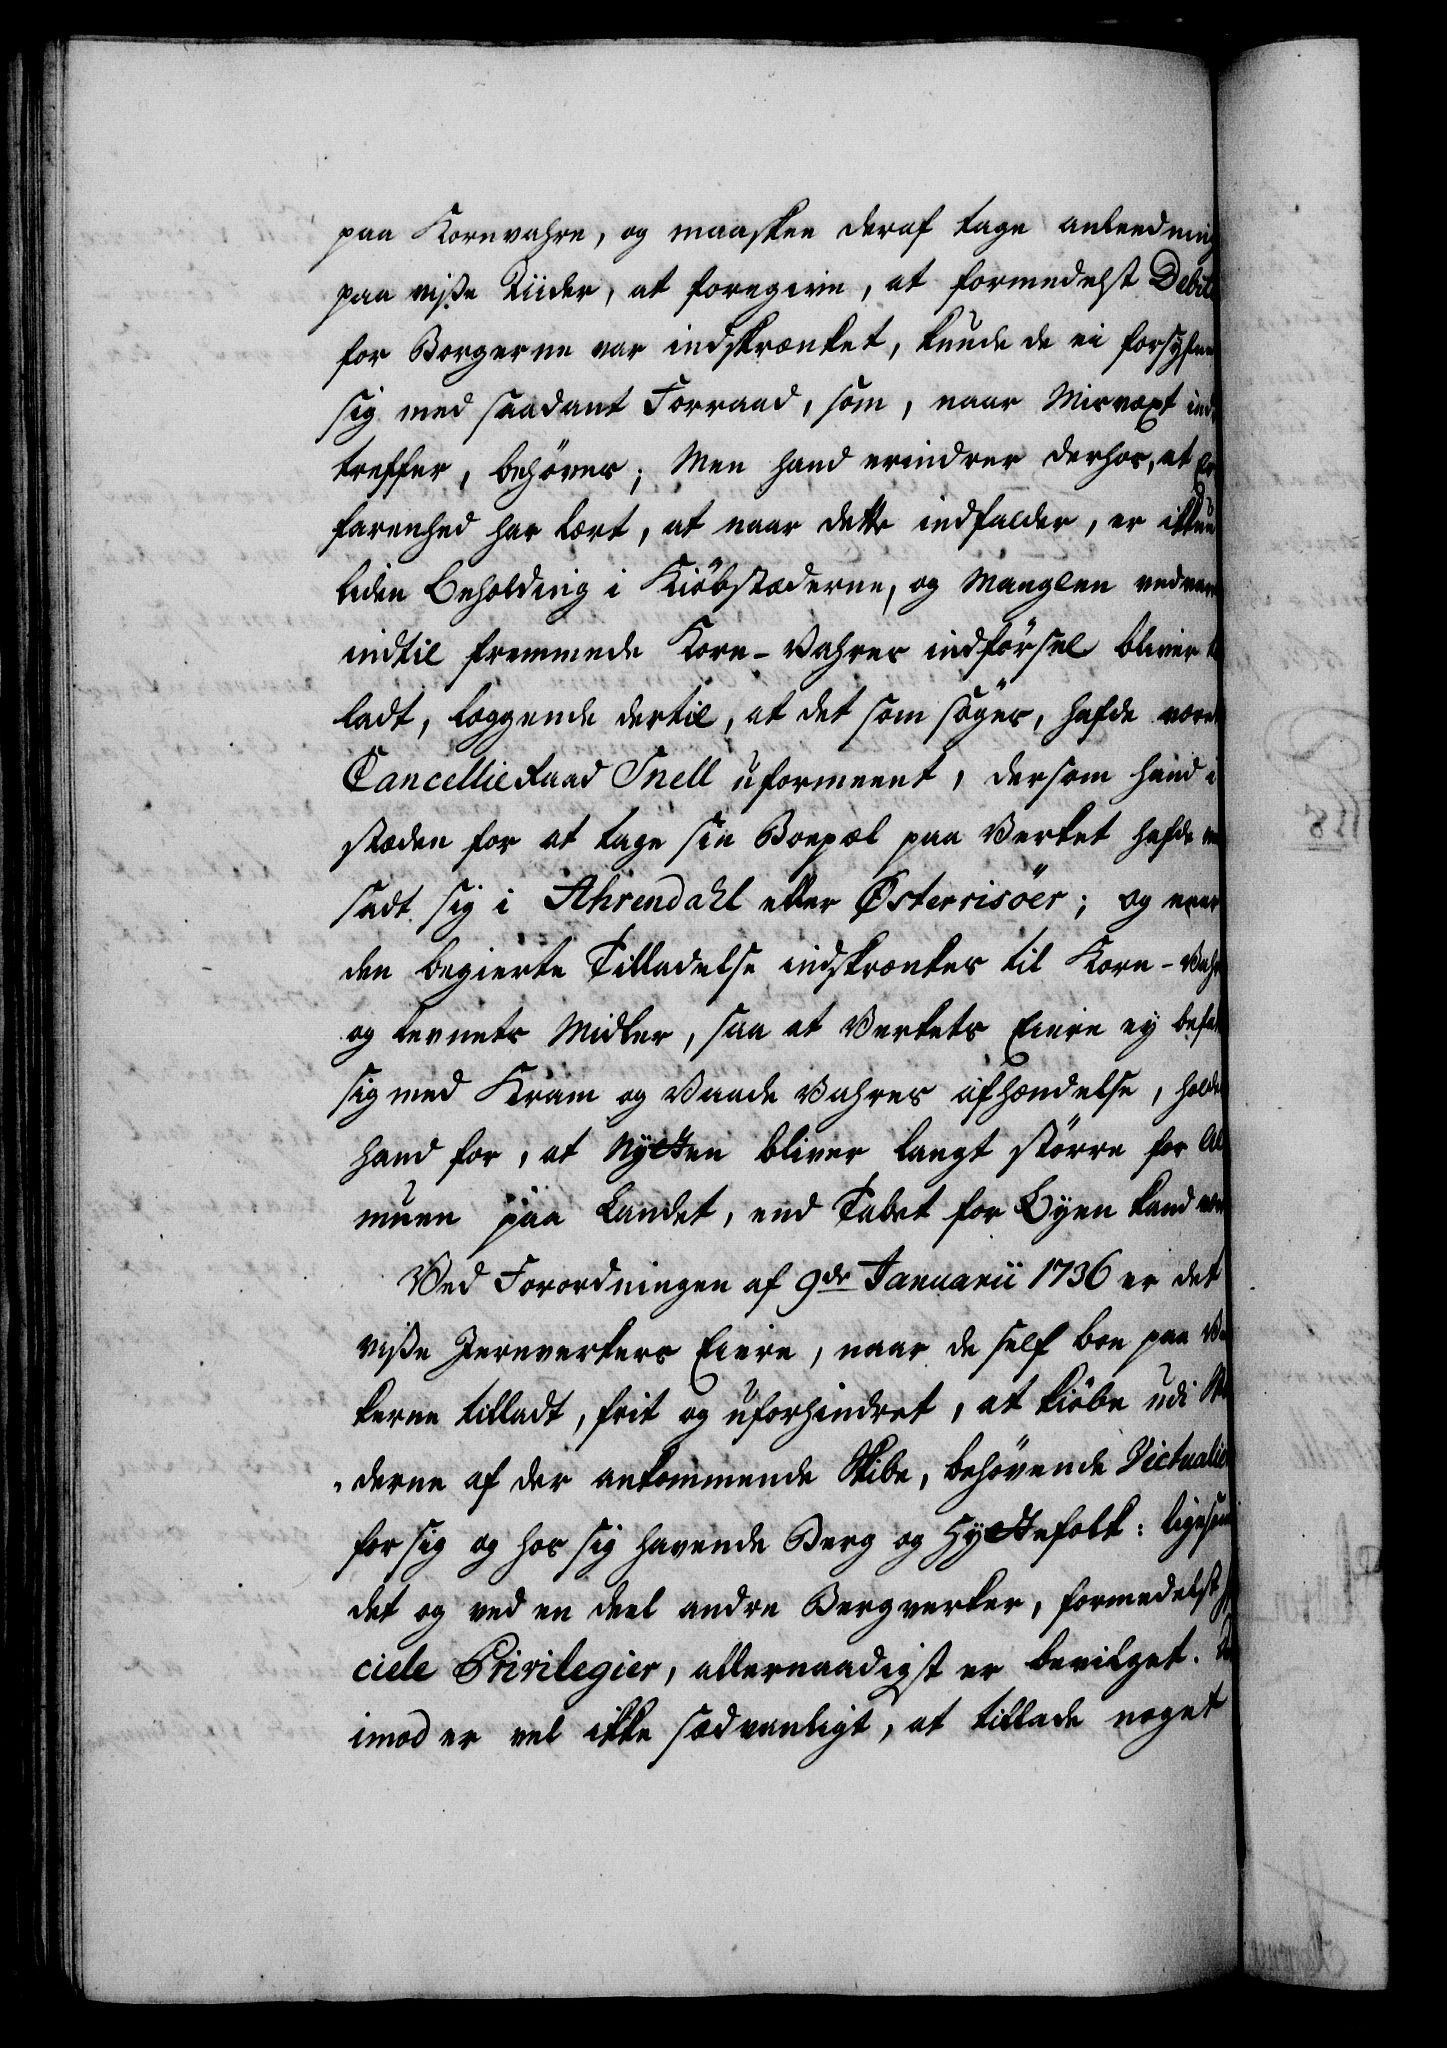 paa Kornvahre, og maaskee deraf tage anleedning
paa visse Tiider, at foregivie, at formedelst Debit
for Borgerne var indskrænket, kunde de ei forsyhne
sig med saadant Forraad, som, naar Misvæxt ind
treffer, behöves; Men hand erindrer derhos, at Er
farenhed har lært, at naar dette indfalder, er ikkun
liden Beholding i Kiöbstæderne, og Manglen vedvarer
indtil fremmede Korn-Vahres indförsel bliver til
ladt, læggende dertil, at det som söges, hafde været
CancellieRaad Snell uformeent, dersom hand i
stæden for at tage sin Boepæl paa Verket hafde ned
sadt sig i Ahrendahl eller Østerrisöer; og naar
den begierte Tilladelse indskrænkes til Korn-Vahre
og Levnets Midler, saa at Verkets Eiere ey befatter
sig med Kram og Vaade Vahres afhændelse, holder
hand for, at Nytten bliver langt större for Al
muen paa Landet, end Tabet for Byen kand være
Ved Forordningen af 9de Januarii 1736 er det
visse Jernverkers Eiere, naar de self boe paa Ver
kerne tilladt, frit og uforhindret, at kiöbe udi Stæ
derne af der ankommende Skibe, behövende Victualier
for sig og hos sig havende Berg og Hyttefolk: ligesom
det og ved en deel andre Bergverker, formedelst spe
ciele Privilegier, allernaadigst er bevilget. Der
imod er vel ikke sædvanligt, at tillade noget